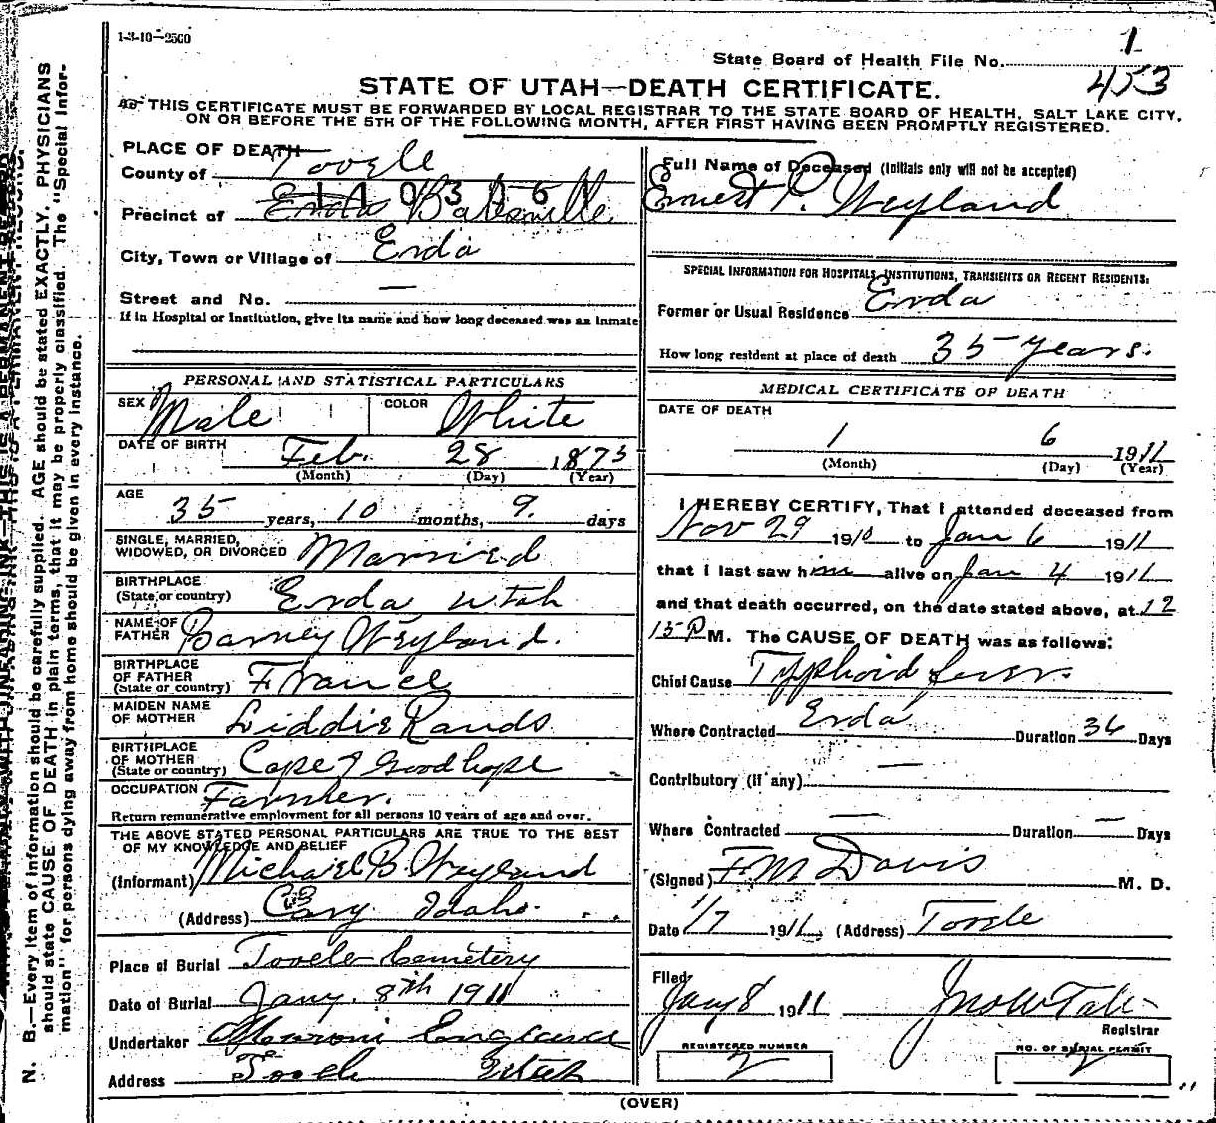 1-3-10-2500
State Board of Health File No. 1
453
STATE OF UTAH—DEATH CERTIFICATE.
THIS CERTIFICATE MUST BE FORWARDED BY LOCAL REGISTRAR TO THE STATE BOARD OF HEALTH, SALT LAKE CITY,
ON OR BEFORE THE 5TH OF THE FOLLOWING MONTH, AFTER FIRST HAVING BEEN PROMPTLY REGISTERED.
PLACE OF DEATH
County of Tooele
Precinct of Erda Batesville
City, Town or Village of Erda
Street and No. —
If in Hospital or Institution, give its name and how long deceased was an inmate
PERSONAL AND STATISTICAL PARTICULARS
SEX Male COLOR White
DATE OF BIRTH Feb. 28 1873
(Month) (Day) (Year)
AGE 35 years, 10 months, 9. days
SINGLE, MARRIED,
WIDOWED, OR DIVORCED Married
BIRTHPLACE
(State or country) Erda Utah
NAME OF
FATHER Barney Weyland.
BIRTHPLACE
OF FATHER
(State or country) France
MAIDEN NAME
OF MOTHER Liddie Rands
BIRTHPLACE
OF MOTHER
(State or country) Cape of Good hope
OCCUPATION Farmer.
Return remunerative employment for all persons 10 years of age and over.
THE ABOVE STATED PERSONAL PARTICULARS ARE TRUE TO THE BEST
OF MY KNOWLEDGE AND BELIEF
(Informant) Michael B. Weyland
(Address) Cary Idaho.
Place of Burial Tooele Cemetery
Date of Burial Jany. 8th 1911
Undertaker Moroni England
Address Tooele Utah
Full Name of Deceased (Initials only will not be accepted)
Ernest P. Weyland
SPECIAL INFORMATION FOR HOSPITALS, INSTITUTIONS, TRANSIENTS OR RECENT RESIDENTS:
Former or Usual Residence Erda
How long resident at place of death 35 years.
MEDICAL CERTIFICATE OF DEATH
DATE OF DEATH
1 6 1911
(Month) (Day) (Year)
I HEREBY CERTIFY, That I attended deceased from
Nov 29 1910 to Jan 6 1911
that I last saw him alive on Jan 4 1911
and that death occurred, on the date stated above, at 12
15 P M. The CAUSE OF DEATH was as follows:
Chief Cause Typhoid fever.
Where Contracted Erda Duration 36 Days
Contributory (if any) —
Where Contracted — Duration — Days
(Signed) F M Davis M. D.
Date 1/7 1911, (Address) Tooele
Filed
Jany 8 1911
Registrar
REGISTERED NUMBER
2
NO. OF BURIAL PERMIT
2
(OVER)
N. B.—Every item of information should be carefully supplied. AGE should be stated EXACTLY. PHYSICIANS
should state CAUSE OF DEATH in plain terms, that it may be properly classified. The "Special Infor-
mation" for persons dying away from home should be given in every instance.